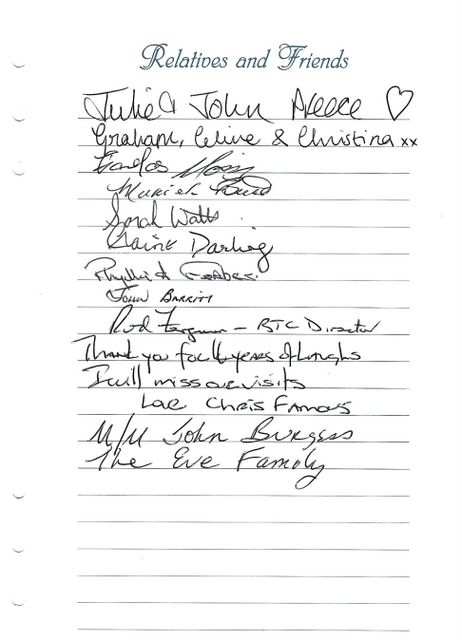 Relatives and Friends
Julie & John Preece ♡
Graham, Clive & Christina xx
Muriel
Sarah Watts
Claire Darling
Phyllis A Forbes.
John Barritt
Rod Ferguson – BTC Director
Thank you for 16 years of laughs
I will miss our visits
Love Chris Famous
M/M John Burgess
The Eve Family